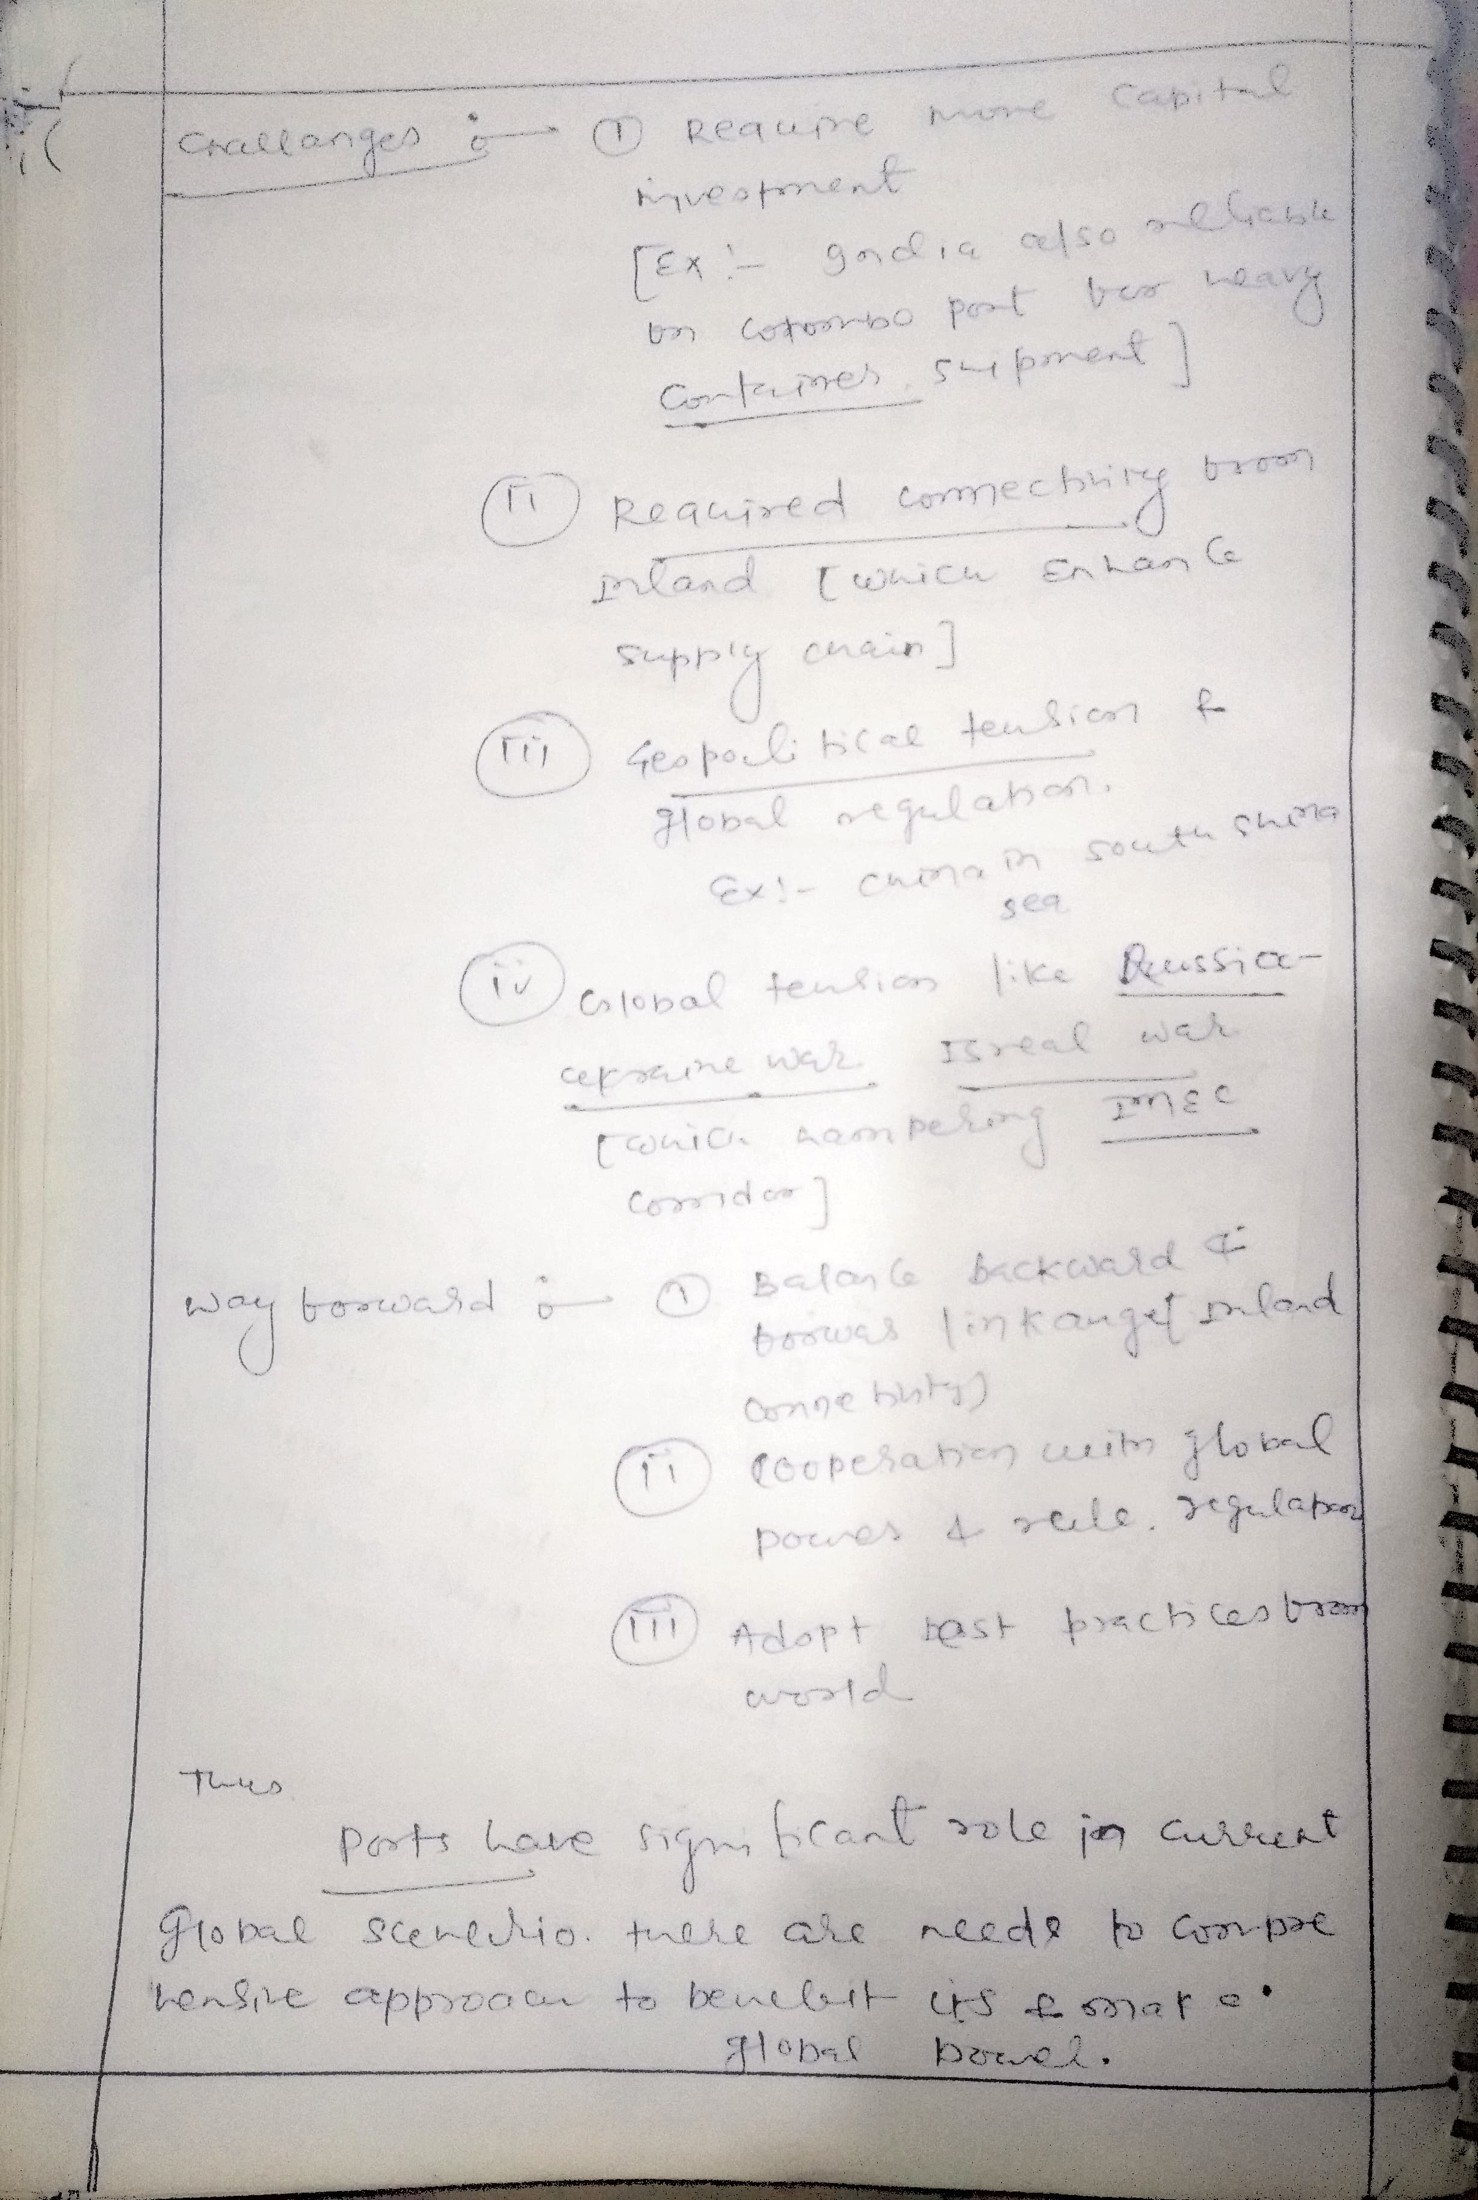 Challanges :- (i) Require more Capital
investment
[Ex:- India also relliable
on Colombo port for heavy
Container shipment]
(ii) Required connectivity from
Inland [which Enhance
supply chain]
(iii) Geopolitical tension &
global regulation.
Ex:- China in South China
sea
(iv) Global tension like Russia-
Ukraine war Isreal war
[which hampering IMEC
Corridor]
Way forward :- (i) Balance Backward &
forwas linkange[Inland
connectivity]
(ii) Cooperation with global
power & rule. regulation
(iii) Adopt best practices from
world
Thus
Ports have significant role in current
Global scenerio. there are needs to compre
hensive approach to benefit its & make
global power.